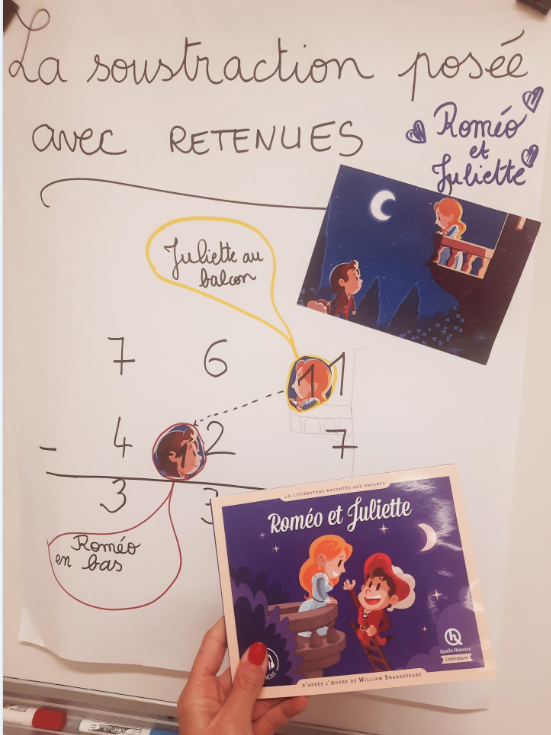 La soustraction posée
avec RETENUES
Roméo
et
Juliette
Juliette au
balcon
7 6 11
- 4 2 7
3 3
Roméo
en bas
LA LITTÉRATURE RACONTÉE AUX ENFANTS
Roméo et Juliette
Quelle Histoire
Littérature
D'APRÈS L'ŒUVRE DE WILLIAM SHAKESPEARE